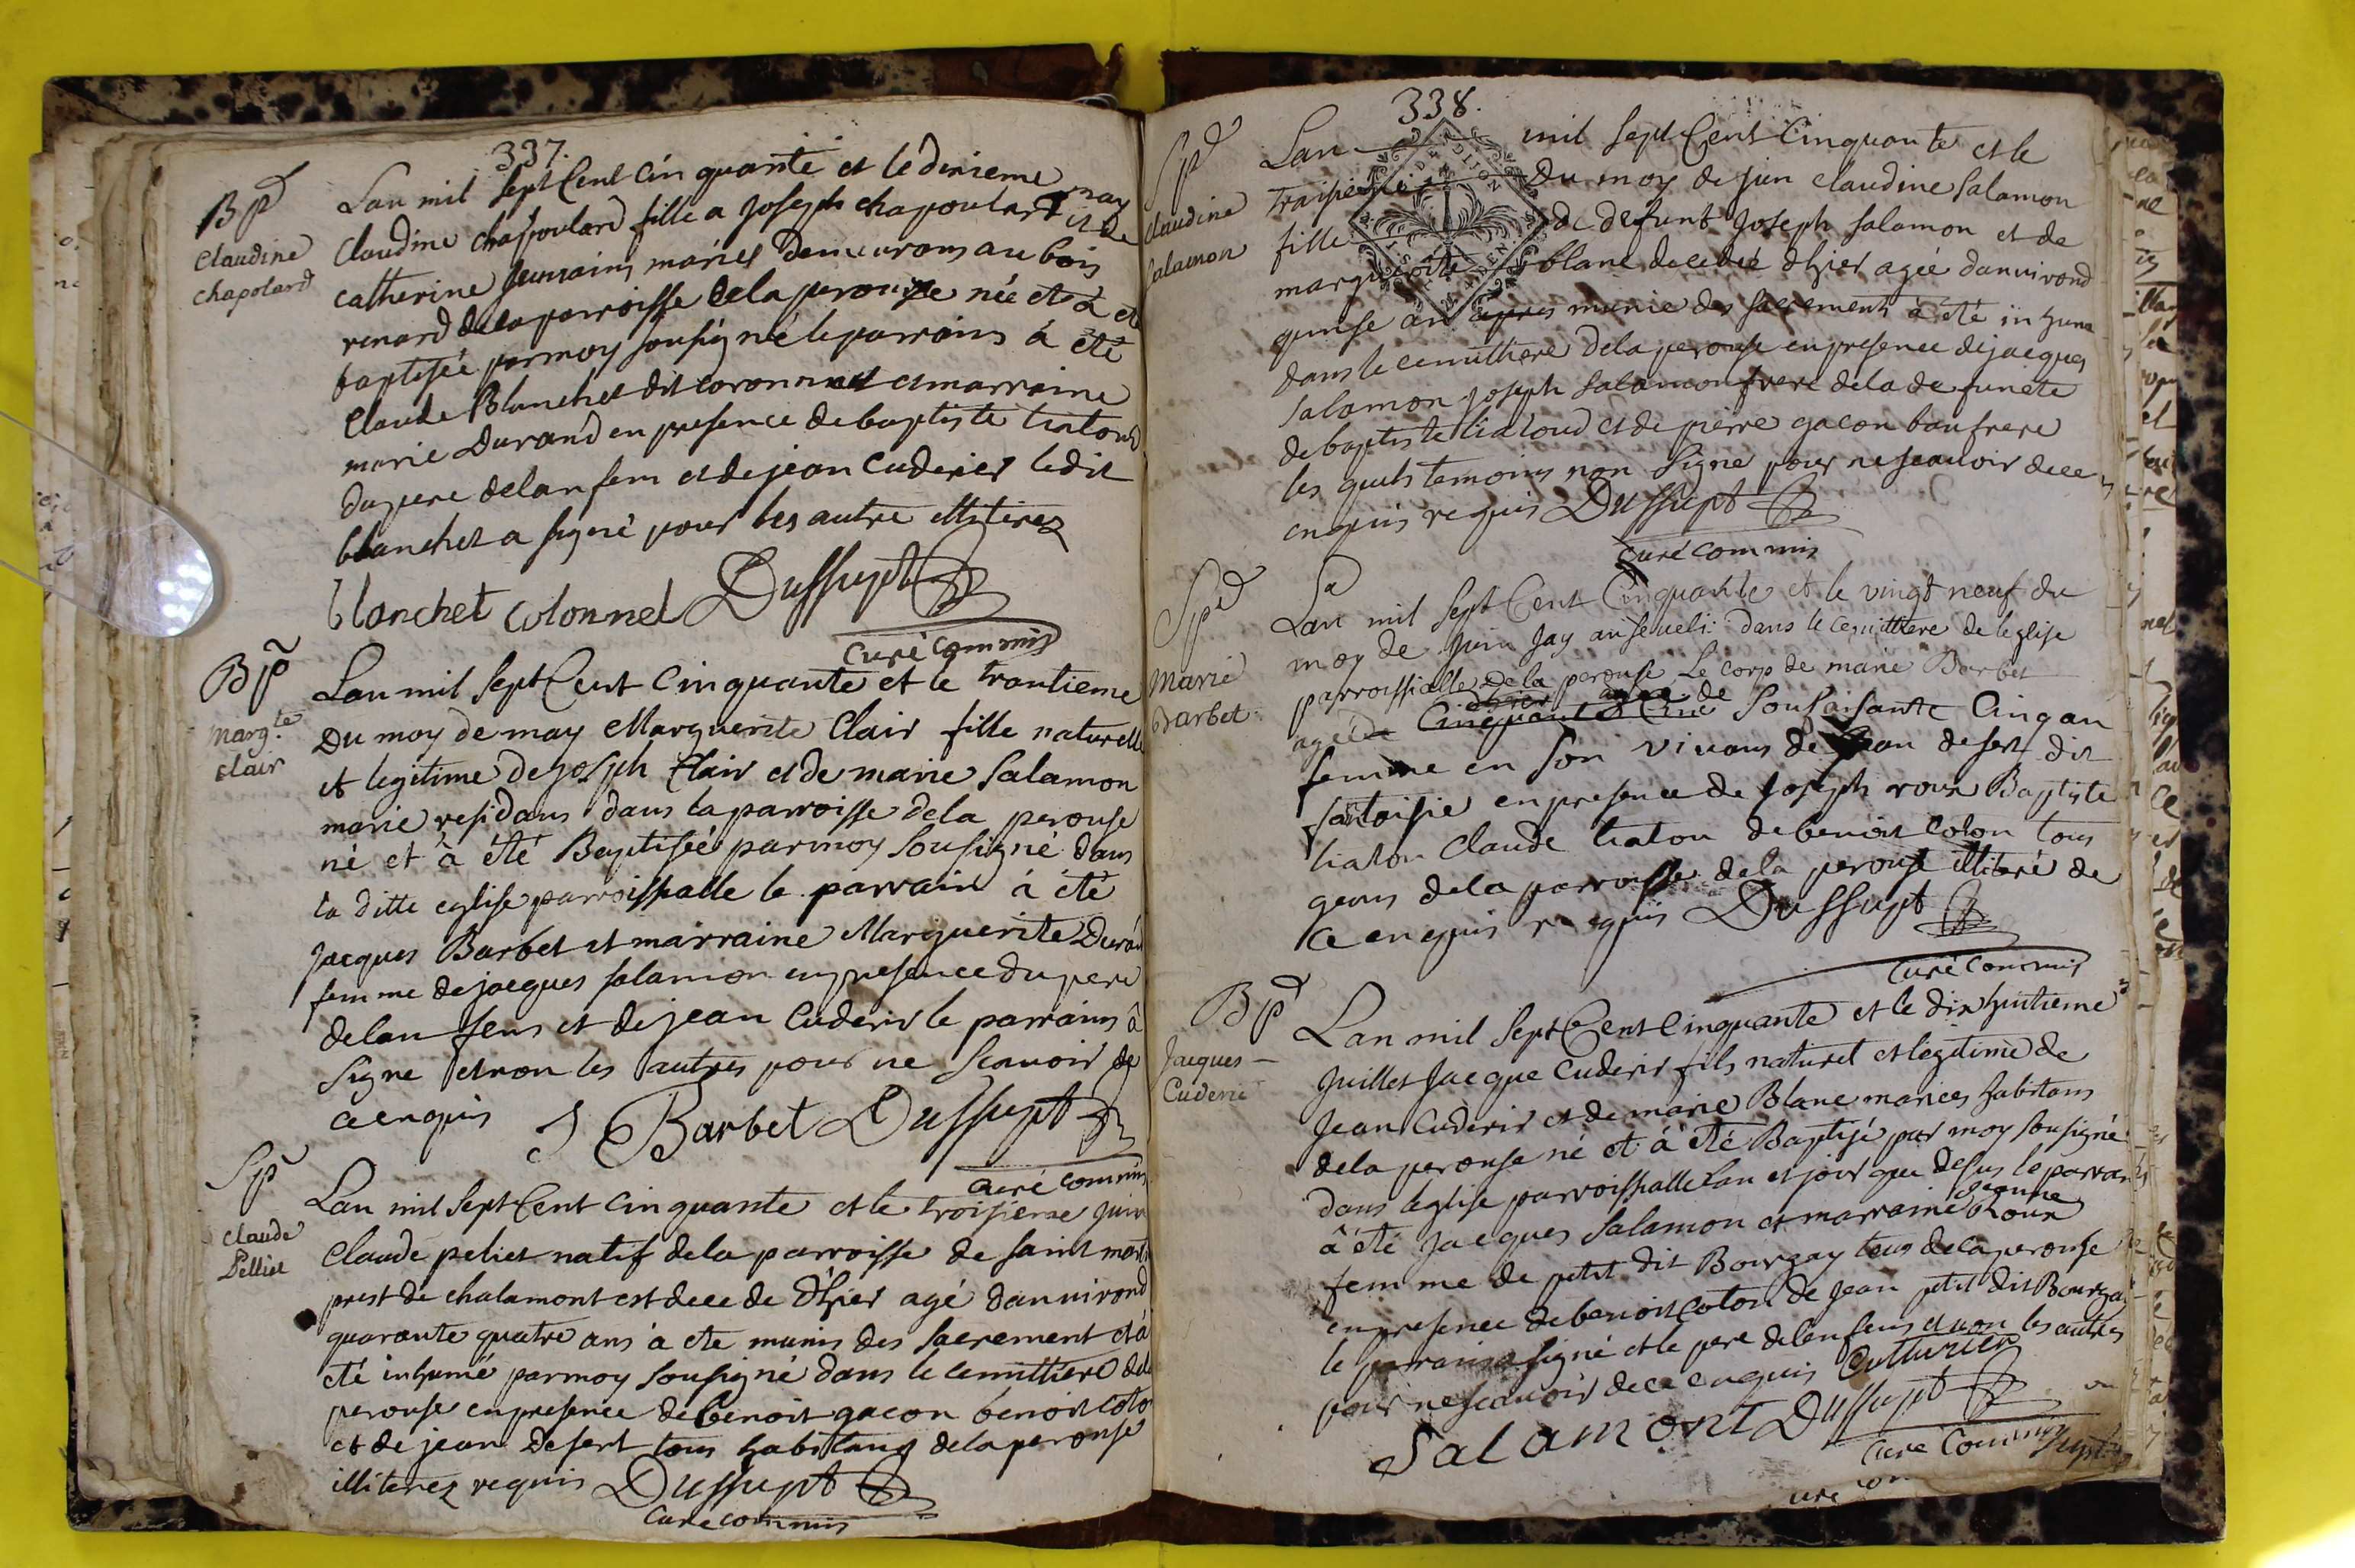 337.
Bp
Claudine
chapolard
Lan mil sept Cent Cinquante et le dixieme may
Claudine chapoulard fille a Joseph chapoulard et de
catherine mariés demeurans au bois
renard dela parroisse dela perouze née et a ete
baptisée par moy sousigné le parrains á été
Claude Blanchet dit coronnel et marraine
marie Durand en presence de baptiste liatoud
du pere delanfem et de jean Cuderier ledit
blanchet a signé pour les autre illiterez
blanchet colonnel Dussupt
curé commis
Bp
Margte
Clair
Lan mil sept Cent Cinquante et le trantieme
Du moy de may Marguerite Clair fille naturelle
et legitime de Joseph Clair et de marie Salamon
marie residans dans la parroisse dela perouse
né et à été Baptisée par moy Sousigné dans
la ditte eglise parroissialle le parrain à été
Jacques Barbet et marraine Marguerite Duran
femme de jacques salamon en presence du pere
delan fens et de jean Cuderir le parrains à
signe et non les autres pour ne Scavoir de
ce enquis J Barbet Dussupt
curé commis
Sp
Claude
Pelliet
Lan mil sept Cent Cinquante et le troisieme juin
Claude peliet natif dela parroisse de saint mart
prest de chalamont est decede dhier agé danvirond
quarante quatre ans à ete munis des sacrement et à
été inhumé par moy sousigné dans le cemittiere dela
perouse en presence de benoit gacon benoit colo
et de jean Desert tous habitans dela perouse
illiterez requis Dussupt
Curé commis
338.
Spd
Claudine
Salamon
Lan mil sept Cent Cinquante et le
traisie du moy de juin claudine Salamon
fille de defunt Joseph Salamon et de
marguerite blanc decedée dhier agée danvirond
quinse an apres munie des sacrements à été inhume
dans le cemittiere dela perouse en presence de jacques
Salamon Joseph Salamon frere dela defuncte
de baptiste liatoud et de pierre gacon baufrere
les quels temoins non signe pour ne scavoir de ce
enquis requis Dussupt
Curé commis
Spd
Marie
Barbet
Lan mil sept Cent Cinquante et le vingt neuf du
moy de juin Jay anseveli dans le cemittiere de leglise
parroissialle de la perouse Le corp de marie Barbet
agée de Cinquante Cinc Sousaisante Cinq an
femme en son vivans de Jean desert dit
fantoisie en presence de Joseph roux Baptiste
liaton Claude liaton de benoit Colon tous
geans dela parroisse dela perouse illiteré de
ce enquis requis Dussupt
Curé commis
Bp
Jacques
Cuderié
Lan mil sept Cent Cinquante et le dix huitieme
Juillet Jacque Cuderir fils naturel et legitime de
Jean Cuderir et de marie Blanc mariees habitans
dela perouse né et à été Baptisé par moy sousigné
dans leglise parroissialle lan et jour que desus le parrain
à été Jacques Salamon et marraine Jeanne Roux
femme de petit dit Bourgay tous dela perouse
en presence de benoit coton de Jean petit dit Bourga
le parrain a signé et le pere delenfens et non les autres
pour ne scavoir de ce enquis Cutturier
Salamont Dussupt
Curé Commis